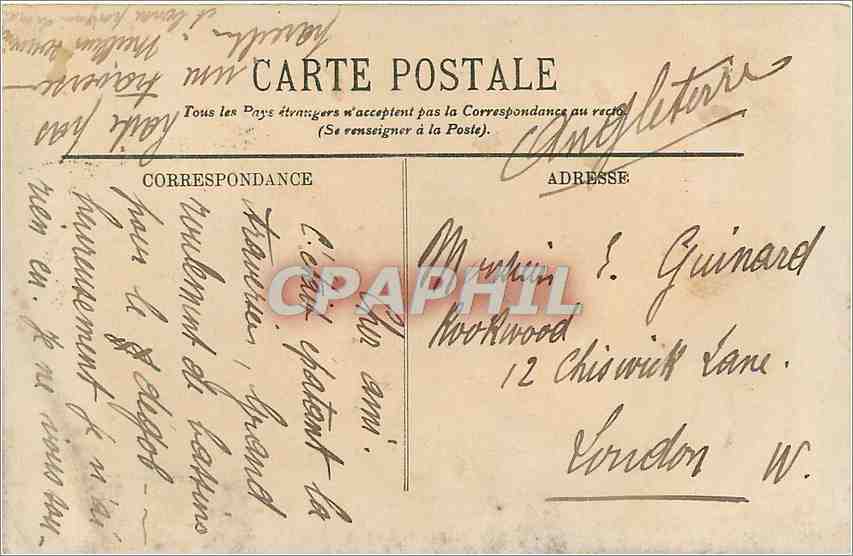 CARTE POSTALE
Tous les Pays étrangers n'acceptent pas la Correspondance au recto.
(Se renseigner à la Poste).
CORRESPONDANCE
ADRESSE
Angleterre
Monsieur E. Guinard
Rookwood
12 Chiswick Lane.
London W.
Cher ami.
C'était épatant la
traversée, Grand
roulement de bassins
pour le dégob--
heureusement je n'ai
rien eu. Je ne vous sou-
haite pas
une traversée
pareille.
CPAPHIL